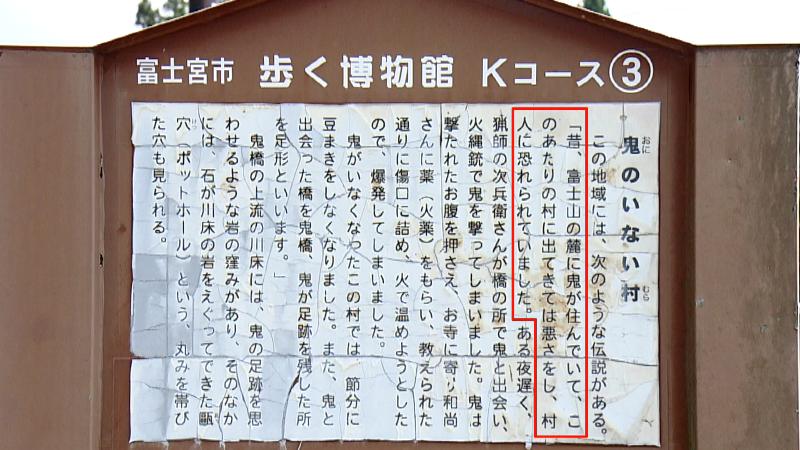 富士宮市 歩く博物館 Kコース③
鬼のいない村
おに
むら
この地域には、次のような伝説がある。
「昔、富士山の麓に鬼が住んでいて、こ
のあたりの村に出てきては悪さをし、村
人に恐れられていました。ある夜遅く、
猟師の次兵衛さんが橋の所で鬼と出会い、
火縄銃で鬼を撃ってしまいました。鬼は
撃たれたお腹を押さえ、お寺に寄り和尚
さんに薬（火薬）をもらい、教えられた
通りに傷口に詰め、火で温めようとした
ので、爆発してしまいました。
鬼がいなくなったこの村では、節分に
豆まきをしなくなりました。また、鬼と
出会った橋を鬼橋、鬼が足跡を残した所
を足形といいます。」
鬼橋の上流の川床には、鬼の足跡を思
わせるような岩の窪みがあり、そのなか
には、石が川床の岩をえぐってできた甌
穴（ポットホール）という、丸みを帯び
た穴も見られる。